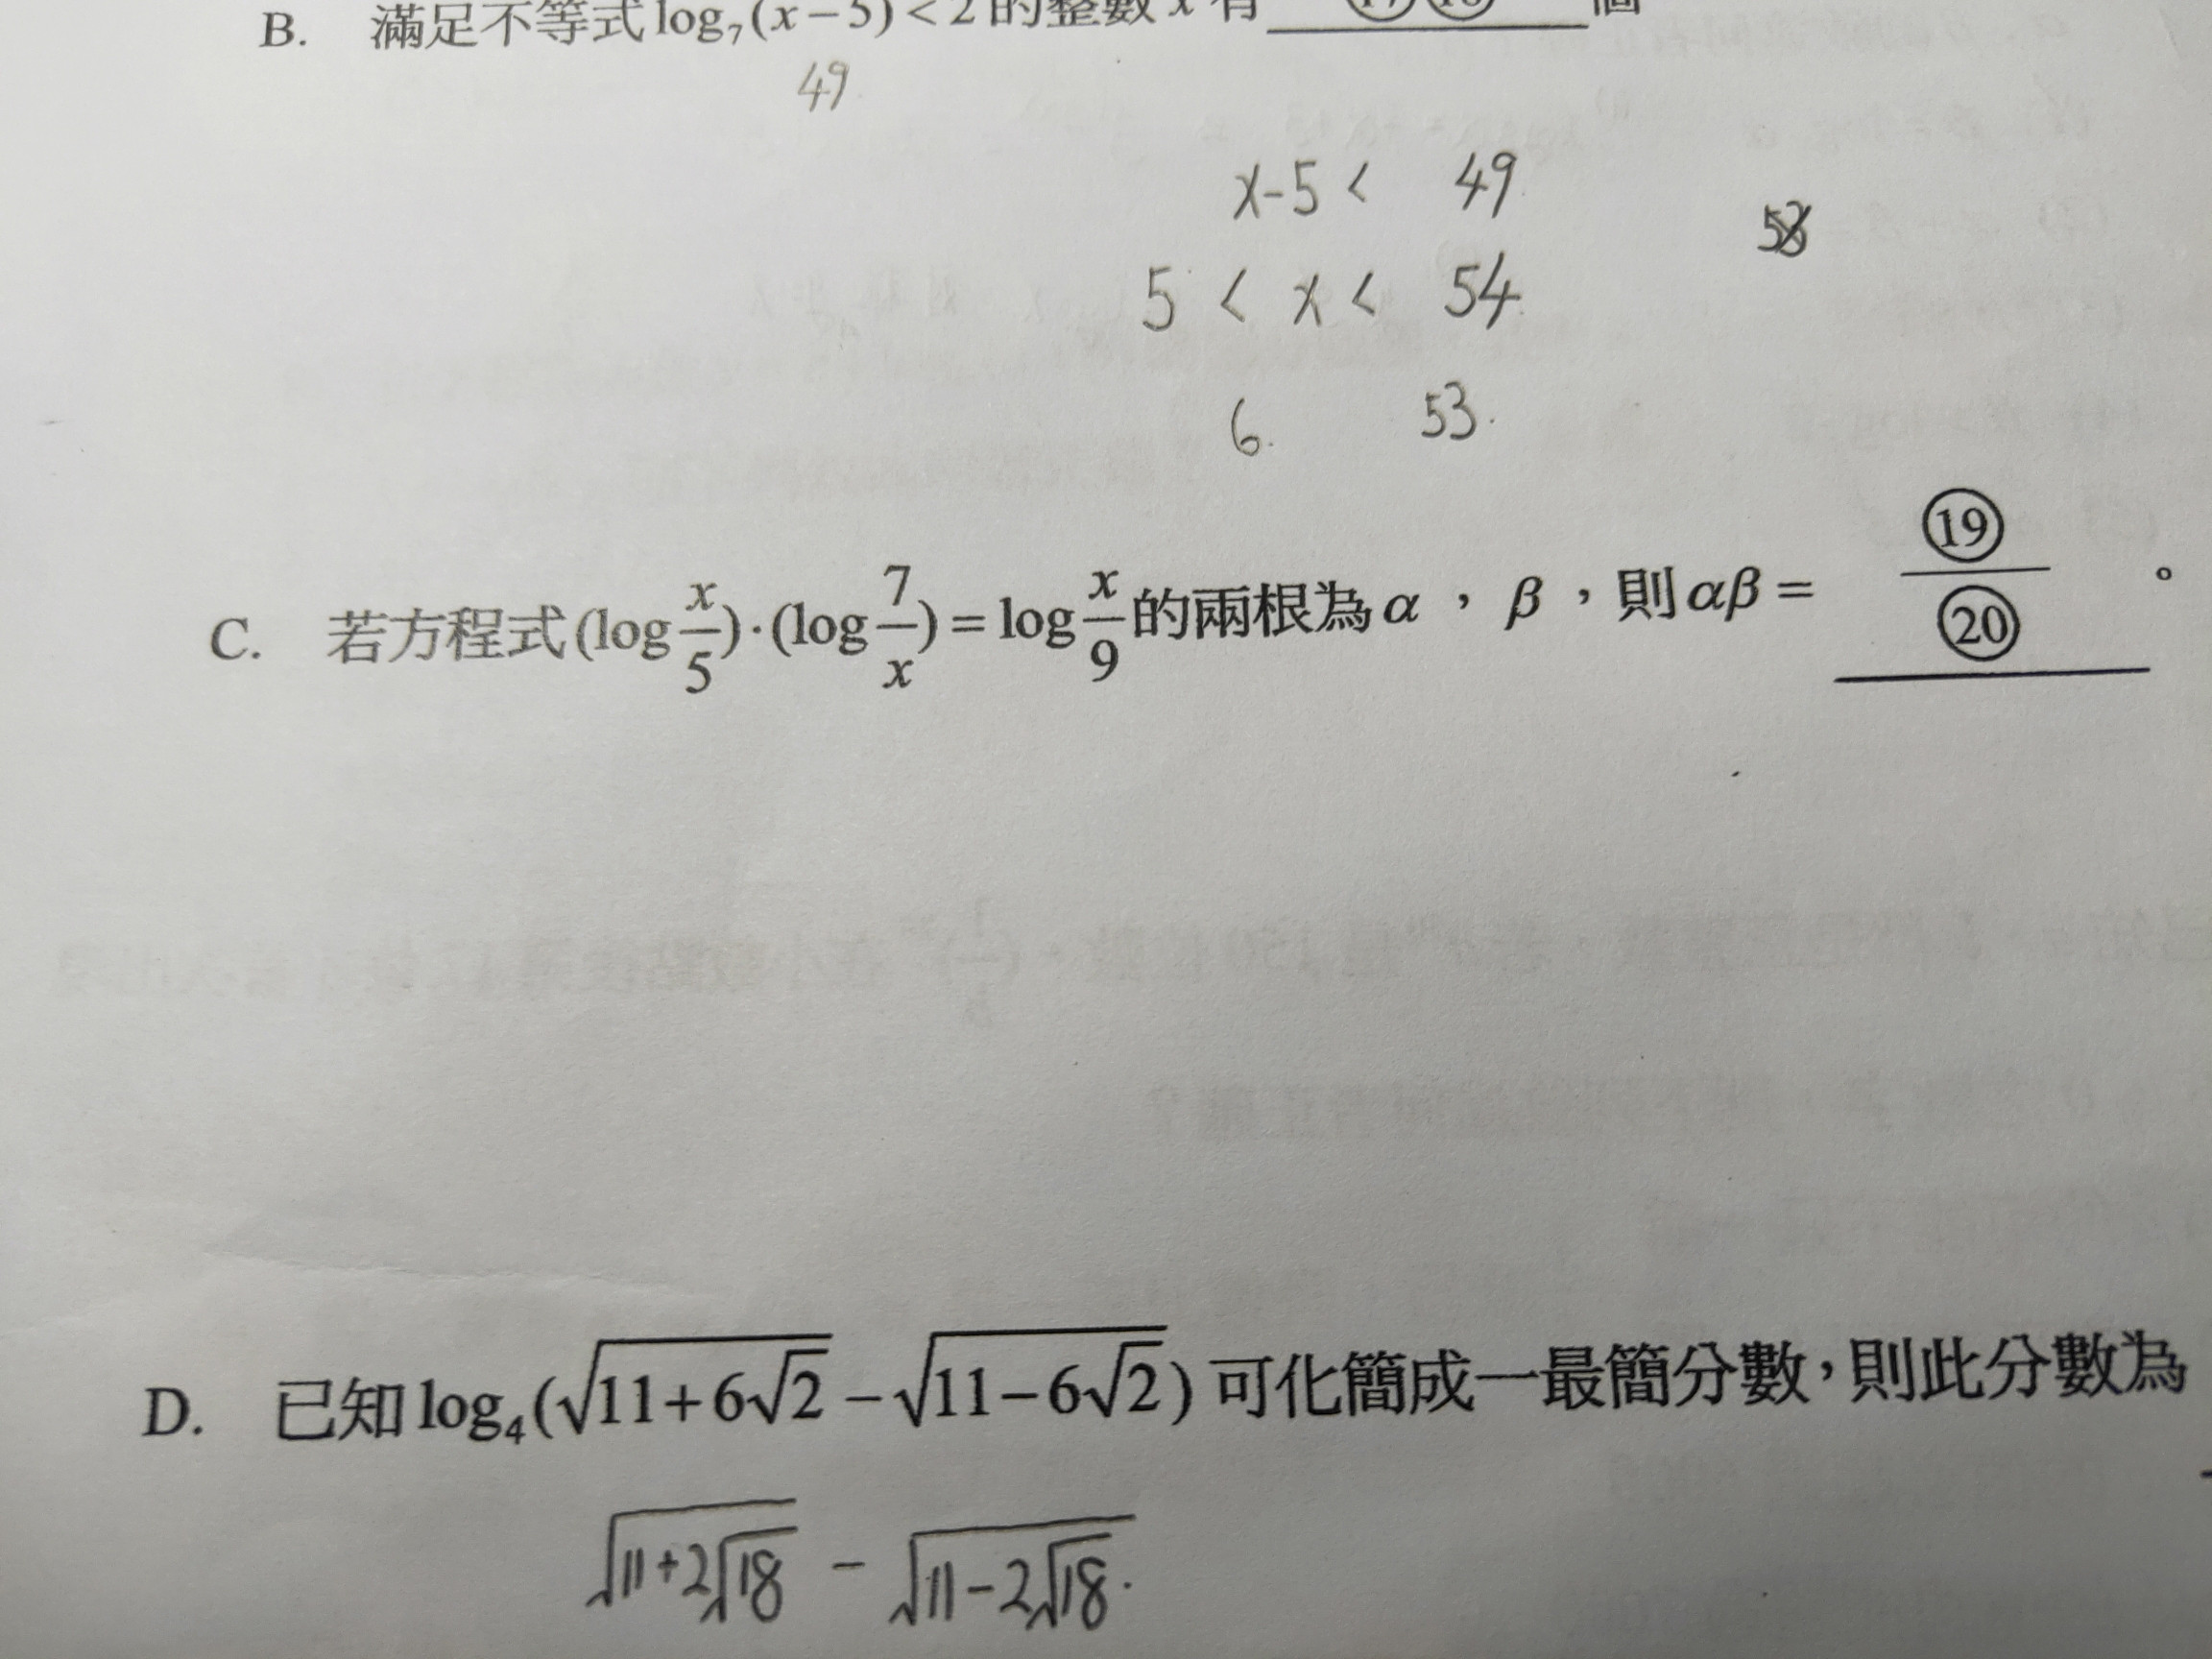 B. 滿足不等式 log₇(x−5)<2 的整數 x 有 ⑰⑱ 個
49
x-5 < 49
5 < x < 54
6. 53.
C. 若方程式(log x/5)·(log 7/x)=log x/9 的兩根為 α，β，則 αβ= ⑲/⑳ 。
D. 已知 log₄(√(11+6√2) − √(11−6√2)) 可化簡成一最簡分數，則此分數為
√(11+2√18) − √(11−2√18).